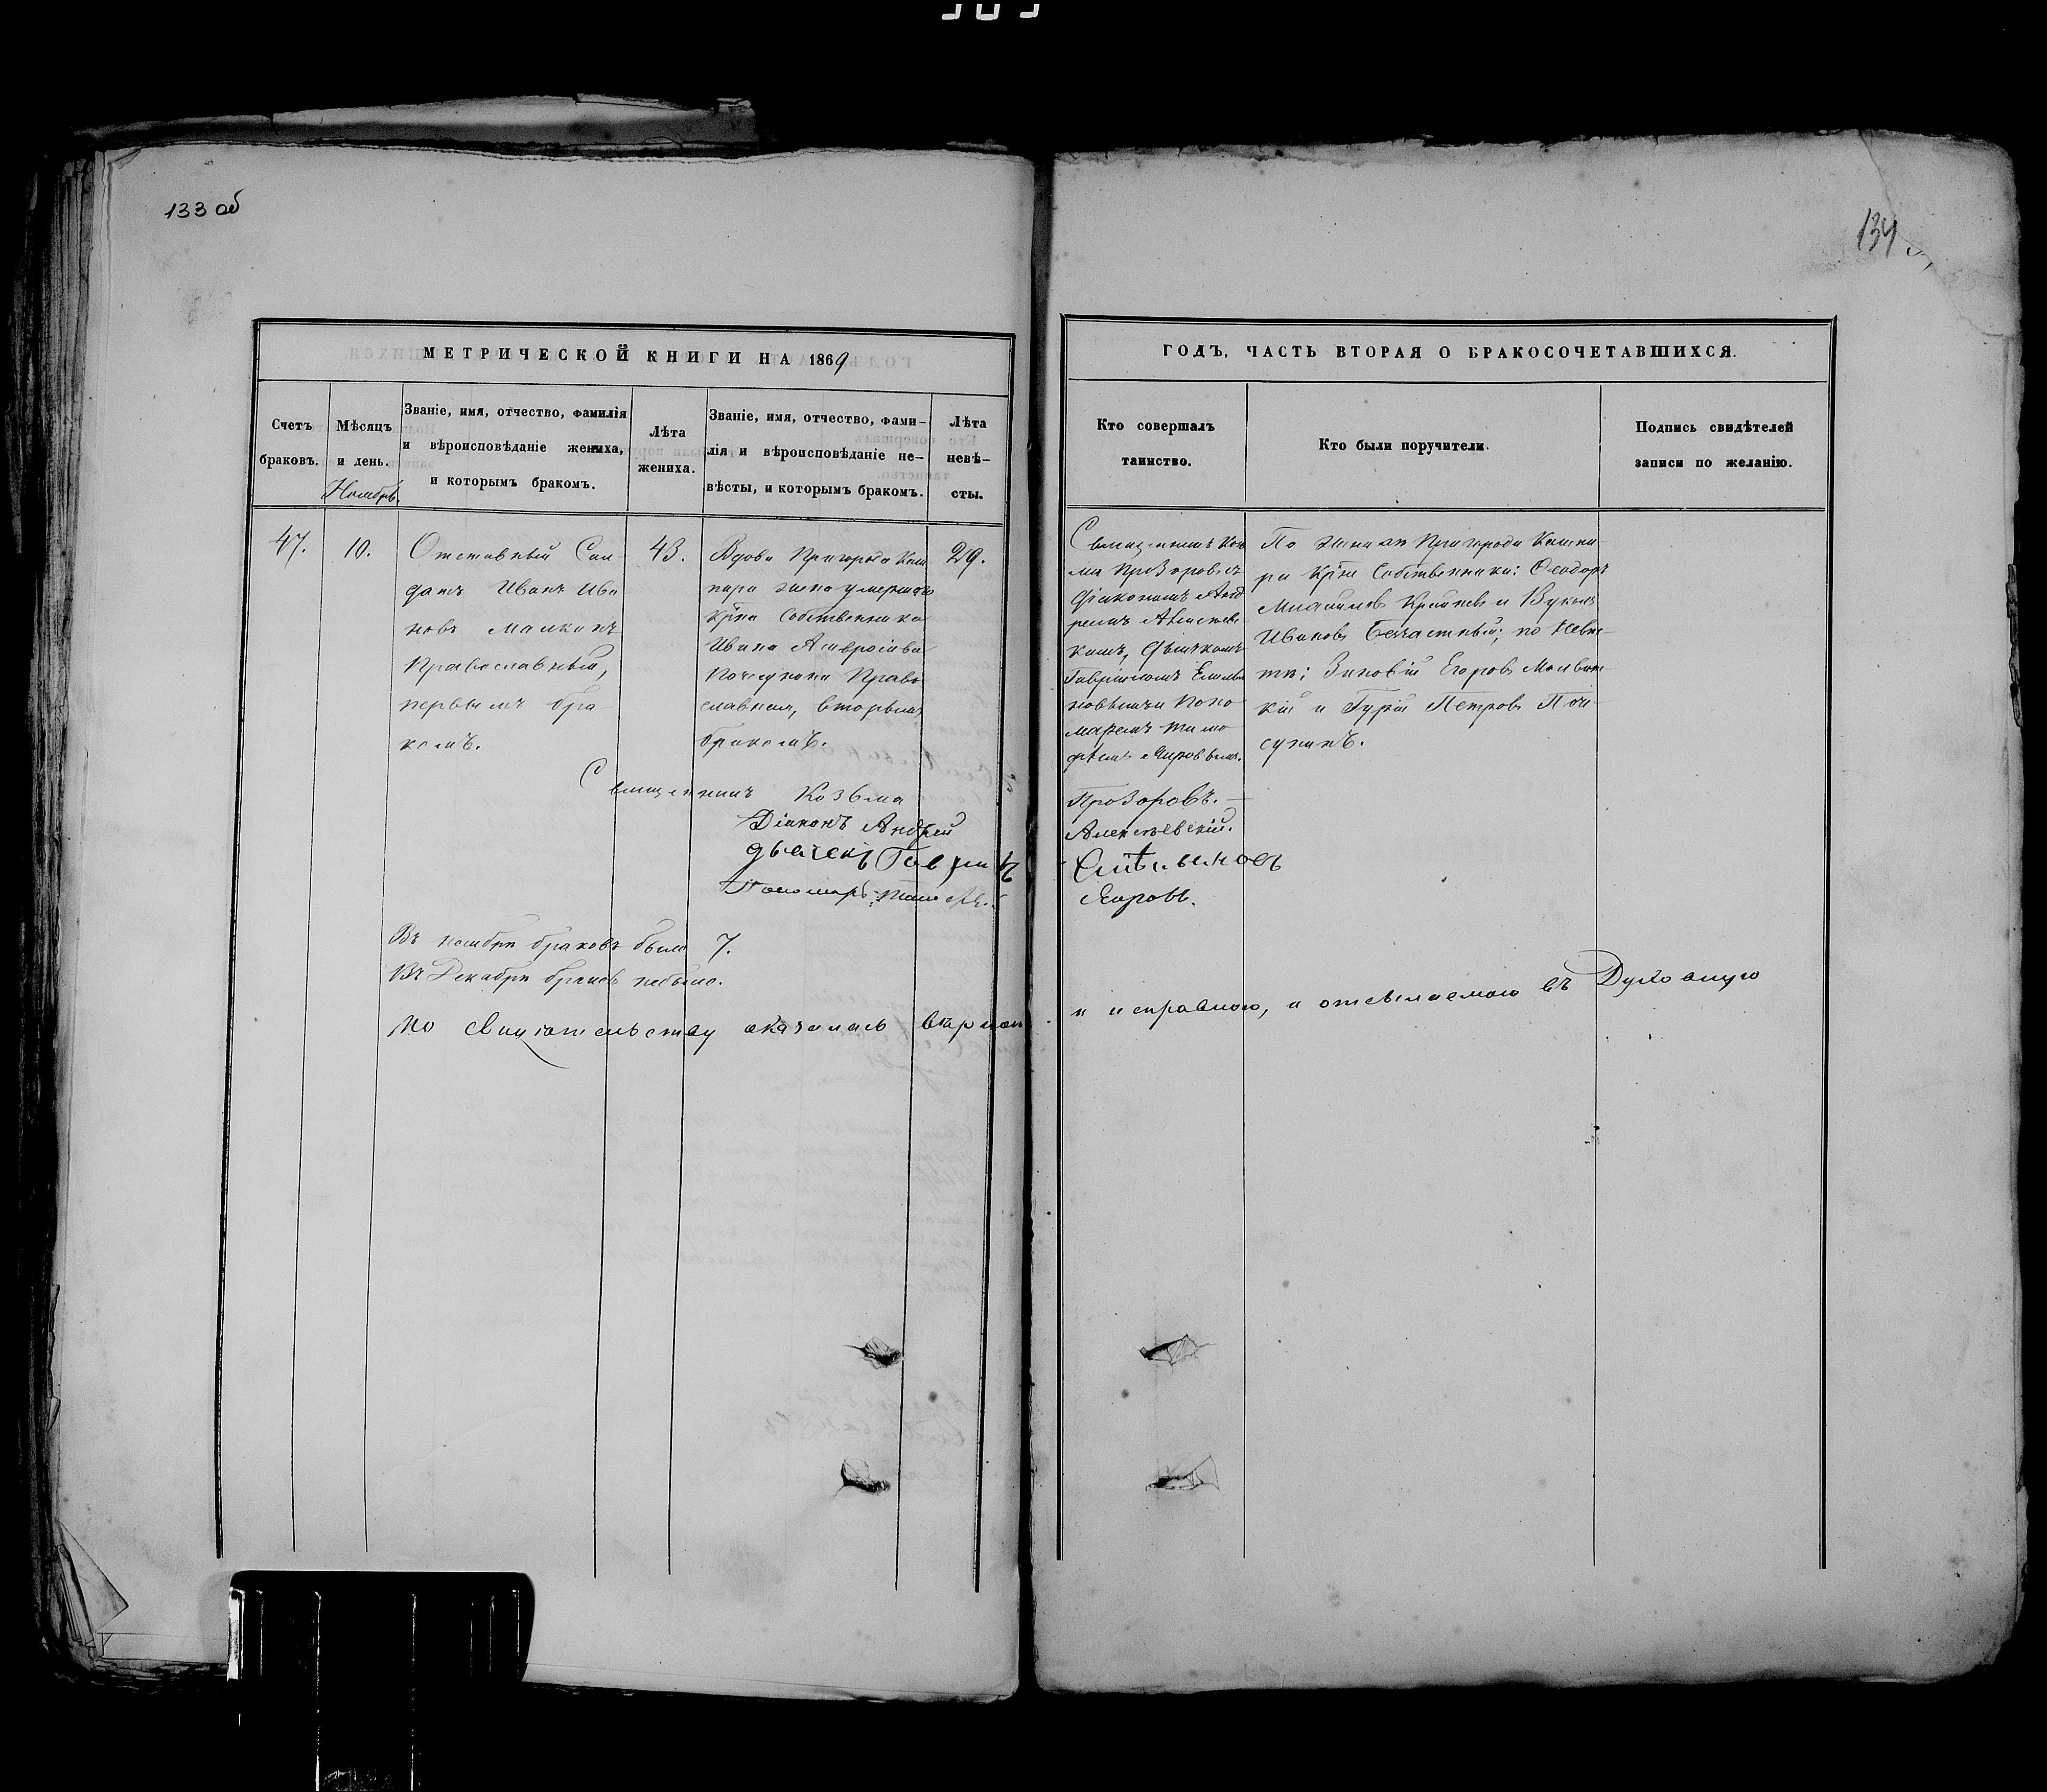 133 об
134
МЕТРИЧЕСКОЙ КНИГИ НА 1869
ГОДЪ, ЧАСТЬ ВТОРАЯ О БРАКОСОЧЕТАВШИХСЯ.
Счетъ
браковъ.
Мѣсяцъ
и день.
Ноябрь.
Званіе, имя, отчество, фамилія
и вѣроисповѣданіе жениха,
и которымъ бракомъ.
Лѣта
жениха.
Званіе, имя, отчество, фами-
лія и вѣроисповѣданіе не-
вѣсты, и которымъ бракомъ.
Лѣта
невѣ-
сты.
Кто совершалъ
таинство.
Кто были поручители.
Подпись свидѣтелей
записи по желанію.
47.
10.
Отставный Сол-
датъ Иванъ Ива
новъ Малкинъ
Православный,
первымъ бра-
комъ.
43.
Вдова Пригорода Каш
пира жена умершаго
Крна Собственника
Ивана
Православная, вторымъ
бракомъ.
29.
Священникъ Козь
ма Прозоровъ съ
Діакономъ Анд
реемъ Алексѣевс
кимъ, Дьячкомъ
Гавріиломъ Емелья
новымъ и Поно
маремъ Тимо
фѣемъ Яировымъ.
По женихѣ Пригорода Кашпи-
ра Крне Собственники: Ѳеодоръ
Михайловъ и Вуколъ
Ивановъ Безчастный; по Невѣс-
тѣ; Зиновій Егоровъ
и Гурій Петровъ
Священникъ Козьма Прозоровъ.
Діаконъ Андрей Алексѣевскій.
Дьячекъ Гавріилъ Емѣльяновъ
Пономарь Тимоѳей Яировъ.
Въ ноябрѣ браковъ было 7.
Въ Декабрѣ браковъ небыло.
По свидѣтельству оказалась вѣрною и исправною, и отсылаемою въ Духовную